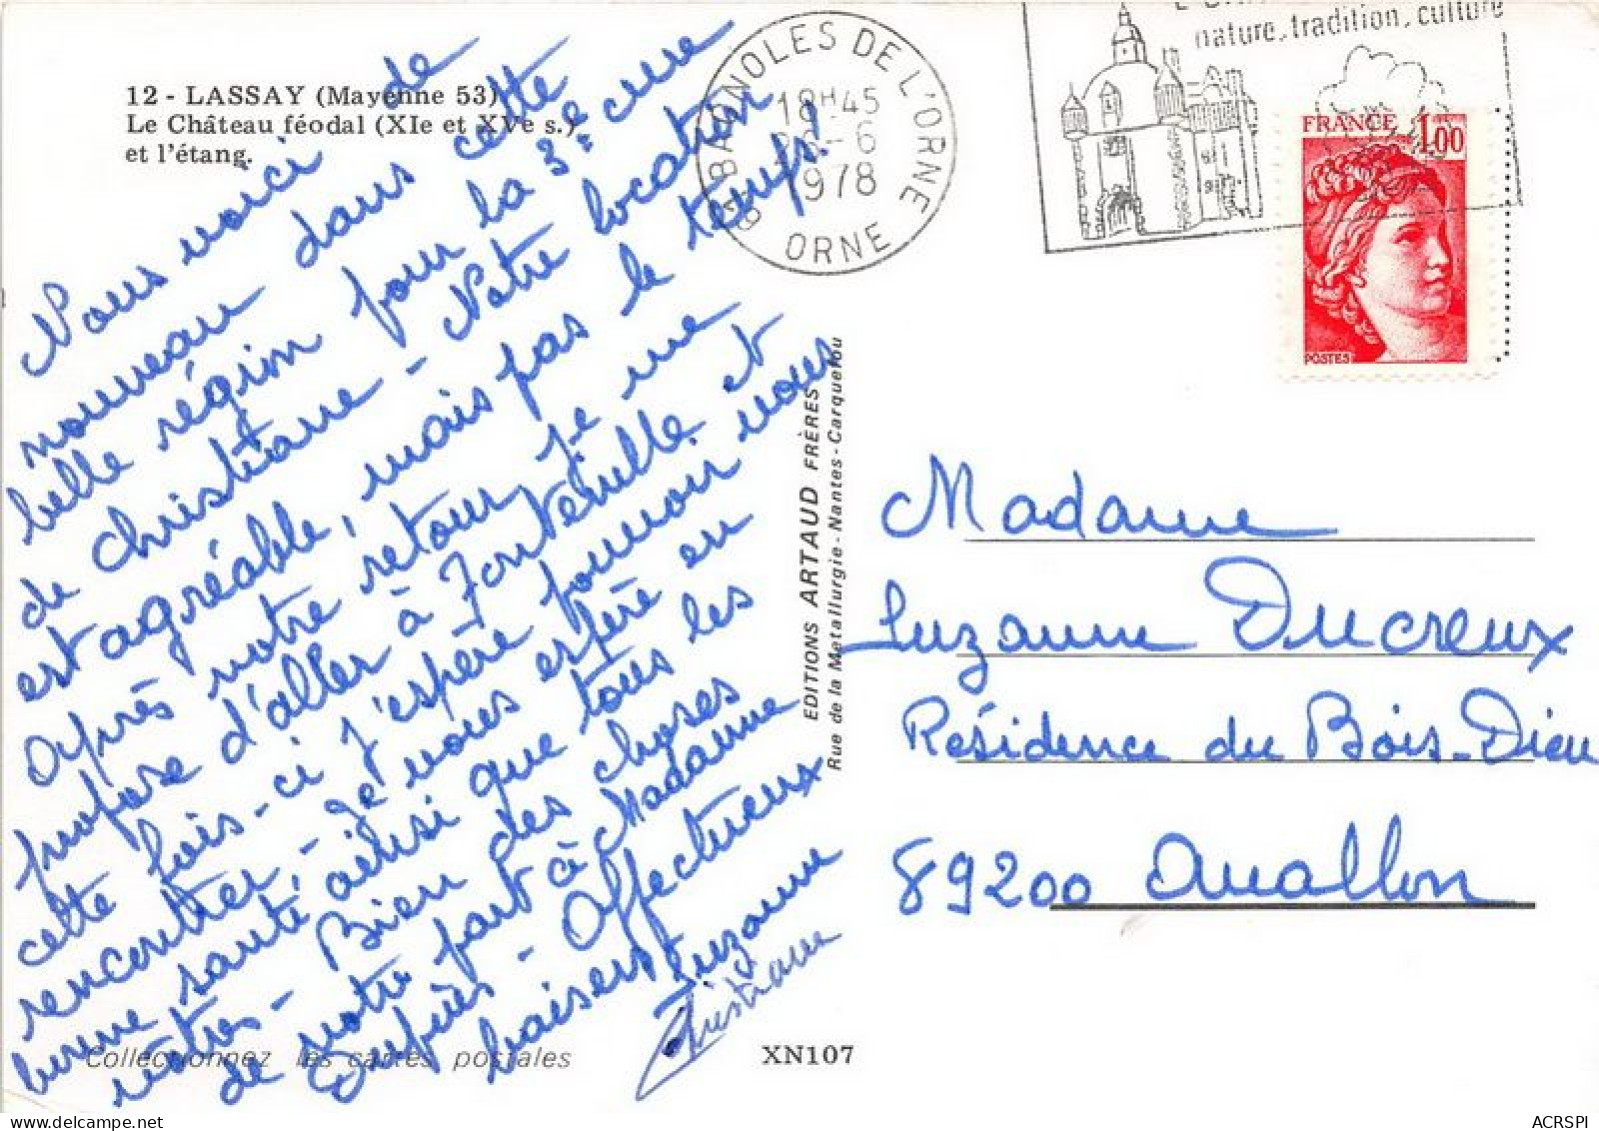 12 - LASSAY (Mayenne 53)
Le Château féodal (XIe et XVe s.)
et l'étang.
BAGNOLES DE L'ORNE
18H45
-6
1978
ORNE
nature, tradition, culture
FRANCE 1,00
POSTES
Nous voici de
nouveau dans cette
belle région pour la 3e cure
de Christiane - Notre location
est agréable, mais pas le temps!
Après notre retour, je me
propose d'aller à Fontenille et
cette fois-ci j'espère pouvoir vous
rencontrer, - Je vous espère en
bonne santé, ainsi que tous les
vôtres - Bien des choses
de notre part à Madame
Dupiès - Affectueux
baisers
Suzanne
Christiane
EDITIONS ARTAUD FRÈRES
Rue de la Métallurgie - Nantes - Carquefou
Madame
Suzanne Ducreux
Résidence du Bois-Dieu
89200 Avallon
Collectionnez les cartes postales
XN107
delcampe.net
ACRSPI